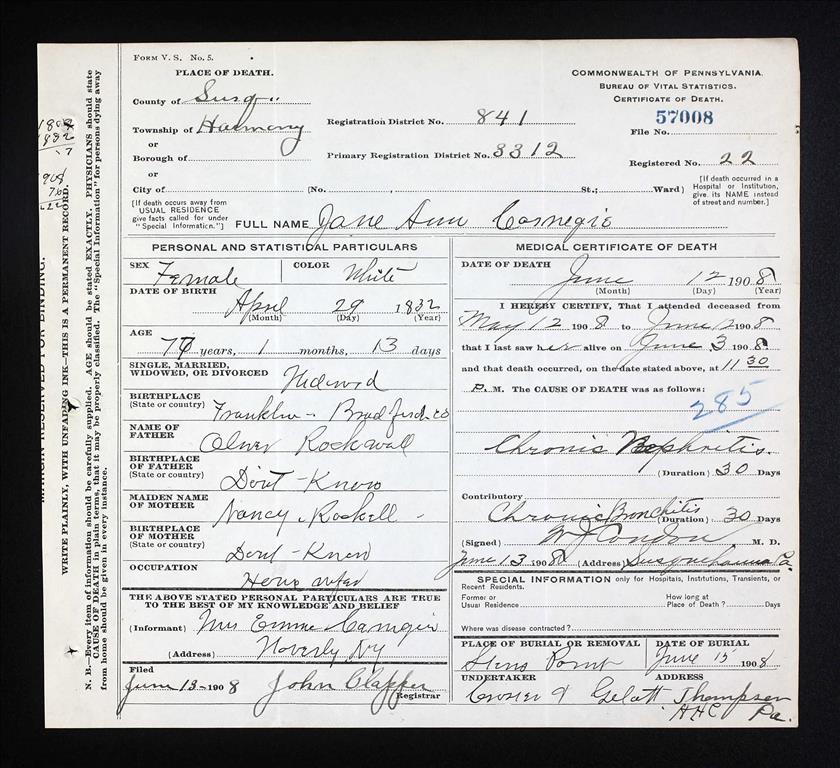 FORM V. S. No. 5.
PLACE OF DEATH.
County of Susq..
Township of Harmony
or
Borough of
or
City of (No. St.; Ward)
[If death occurs away from USUAL RESIDENCE give facts called for under "Special Information."]
Registration District No. 841
Primary Registration District No. 3312
COMMONWEALTH OF PENNSYLVANIA.
BUREAU OF VITAL STATISTICS.
CERTIFICATE OF DEATH.
57008
File No.
Registered No. 22
[If death occurred in a Hospital or Institution, give its NAME instead of street and number.]
FULL NAME Jane Ann Carnegie
PERSONAL AND STATISTICAL PARTICULARS
SEX Female
COLOR White
DATE OF BIRTH
April 29 1832
(Month) (Day) (Year)
AGE
76 years, 1 months, 13 days
SINGLE, MARRIED, WIDOWED, OR DIVORCED Widowed
BIRTHPLACE (State or country) Franklin - Bradford co
NAME OF FATHER Oliver Rockwall
BIRTHPLACE OF FATHER (State or country) Dont-Know
MAIDEN NAME OF MOTHER Nancy Rockell
BIRTHPLACE OF MOTHER (State or country) Dont-Know
OCCUPATION House wife
THE ABOVE STATED PERSONAL PARTICULARS ARE TRUE TO THE BEST OF MY KNOWLEDGE AND BELIEF
(Informant) Mrs Emma Carnegie
(Address) Waverly NY
Filed
June 13-1908 John Clapper
Registrar
MEDICAL CERTIFICATE OF DEATH
DATE OF DEATH
June 12 1908
(Month) (Day) (Year)
I HEREBY CERTIFY, That I attended deceased from
May 12 1908 to June 12 1908
that I last saw her alive on June 3 1908
and that death occurred, on the date stated above, at 11 30
P. M. The CAUSE OF DEATH was as follows:
285
Chronic Nephritis.
(Duration) 30 Days
Contributory
Chronic Bronchitis (Duration) 30 Days
(Signed) W J Condon M. D.
June 13 1908 (Address) Susquehanna Pa.
SPECIAL INFORMATION only for Hospitals, Institutions, Transients, or Recent Residents.
Former or Usual Residence
How long at Place of Death? Days
Where was disease contracted?
PLACE OF BURIAL OR REMOVAL
Stens Point
DATE OF BURIAL
June 15 1908
UNDERTAKER
ADDRESS
Gelatt Thompson
Pa.
N. B.—Every item of information should be carefully supplied. AGE should be stated EXACTLY. PHYSICIANS should state CAUSE OF DEATH in plain terms, that it may be properly classified. The "Special Information" for persons dying away from home should be given in every instance.
WRITE PLAINLY, WITH UNFADING INK—THIS IS A PERMANENT RECORD.
MARGIN RESERVED FOR BINDING.